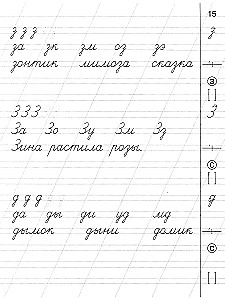 15
з з з з
за зк зм оз зэ
зонтик мимоза сказка
а
[ ]
З З З З
За Зо Зу Зм Зг
Зина растила розы.
с
[ ]
д д д д
да ды ди уд мд
дымок дыни домик
с
[ ]